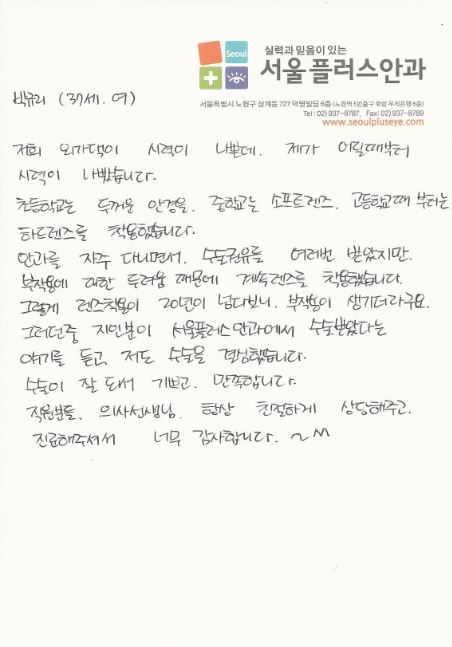 Seoul
실력과 믿음이 있는
서울플러스안과
서울특별시 노원구 상계동 727 덕영빌딩 6층 (노원역 5번출구 후방 우리은행 6층)
Tel: 02) 937-8787, Fax: 02) 937-8789
www.seoulpluseye.com
박규리 (37세. 여)
저희 외가댁이 시력이 나쁜데. 제가 어릴때부터
시력이 나빴습니다.
초등학교는 두꺼운 안경을. 중학교는 소프트렌즈. 고등학교때부터는
하드렌즈를 착용했습니다.
안과를 자주 다니면서. 수술권유를 여러번 받았지만.
부작용에 대한 두려움 때문에 계속 렌즈를 착용했습니다.
그렇게 렌즈착용이 20년이 넘다보니. 부작용이 생기더라구요.
그러던중 지인분이 서울플러스안과에서 수술받았다는
얘기를 듣고. 저도 수술을 결심했습니다.
수술이 잘 되서 기쁘고. 만족합니다.
직원분들. 의사선생님. 항상 친절하게 상담해주고.
진료해주셔서 너무 감사합니다. ~^^